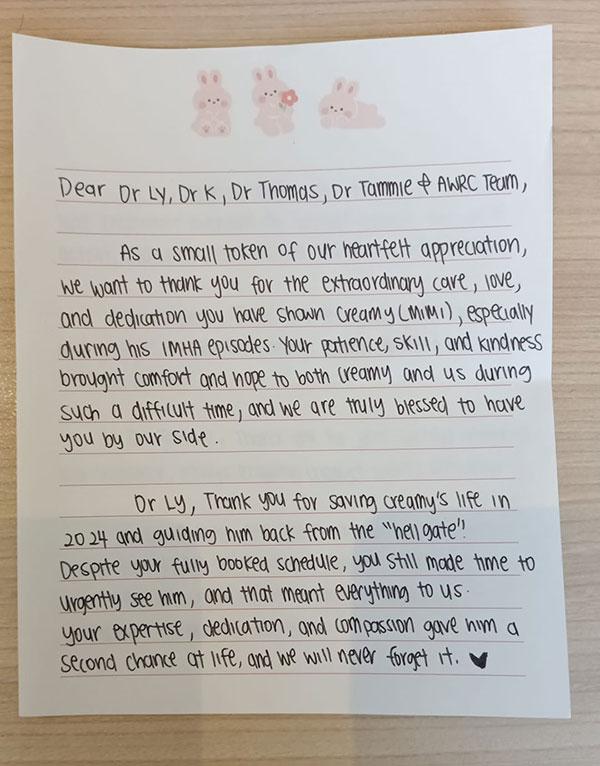 Dear Dr Ly, Dr K, Dr Thomas, Dr Tammie & AWRC Team,
As a small token of our heartfelt appreciation,
we want to thank you for the extraordinary care, love,
and dedication you have shown Creamy (MIMI), especially
during his IMHA episodes. Your patience, skill, and kindness
brought comfort and hope to both Creamy and us during
such a difficult time, and we are truly blessed to have
you by our side.
Dr Ly, Thank you for saving Creamy's life in
2024 and guiding him back from the "hell gate"!
Despite your fully booked schedule, you still made time to
urgently see him, and that meant everything to us.
Your expertise, dedication, and compassion gave him a
second chance at life, and we will never forget it. ♥